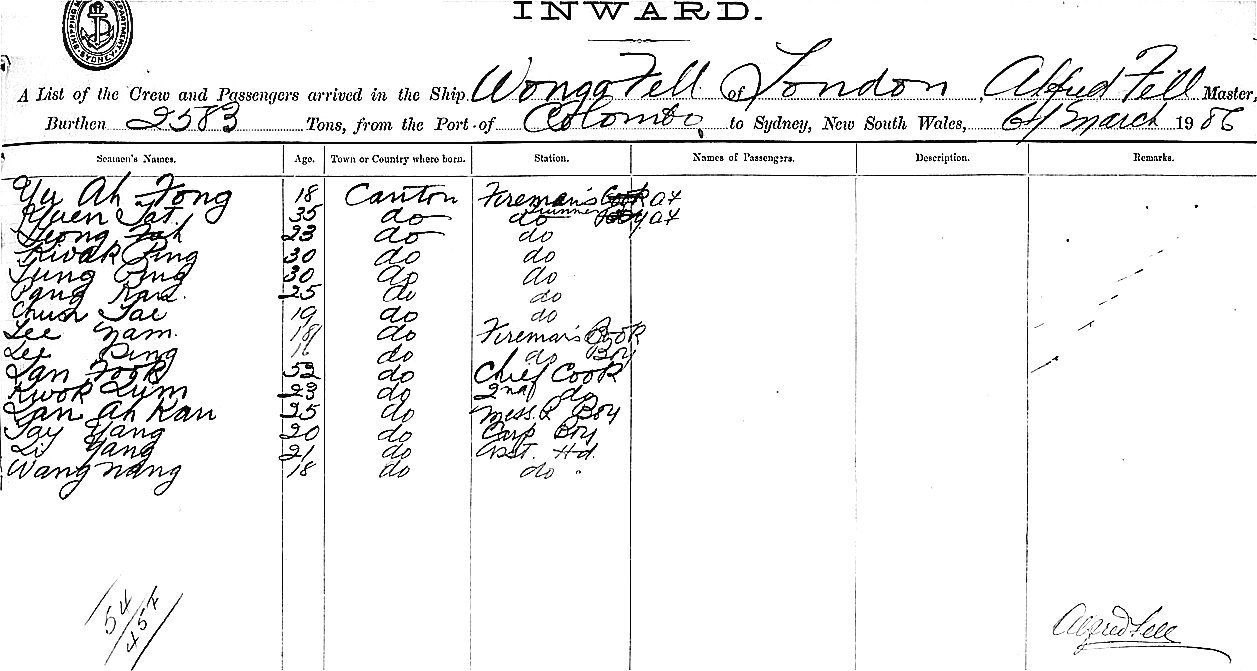 INWARD.
SYDNEY.
A List of the Crew and Passengers arrived in the Ship Wonga Fell of London, Alfred Fell Master,
Burthen 2583 Tons, from the Port of Colombo to Sydney, New South Wales, 6th March 1986
Seamen's Names. Age. Town or Country where born. Station. Names of Passengers. Description. Remarks.
Yu Ah Fong 18 Canton Fireman's Cook
Yuen Tat 35 do do
23 do do
Kwak Ping 30 do do
Tung Ping 30 do do
25 do do
Chun Tae 19 do do
Lee Nam. 18 do Fireman's Cook
Lee Ping 16 do do Boy
Lan Fook 52 do Chief Cook
Kwok Lum 23 do 2nd do
Lan Ah Kan 25 do Mess. R Boy
Tay Yang 20 do Carp Boy
Li Yang 21 do Asst. Hd.
Wang Nang 18 do do
54/452
Alfred Fell